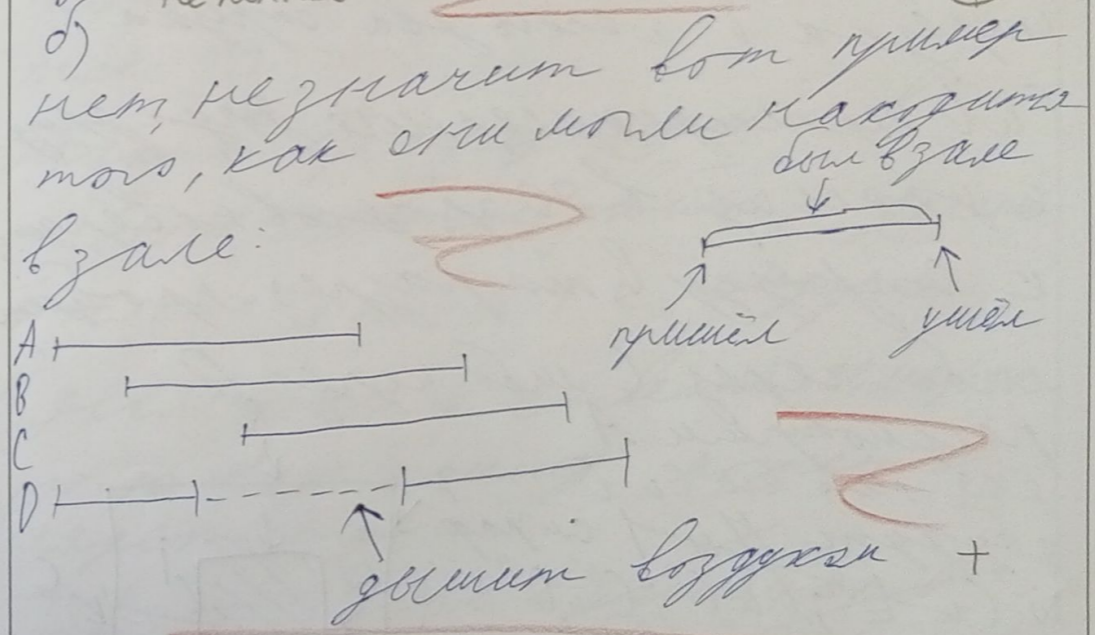 б)
нет, не значит вот пример
того, как они могли находится
в зале:
был в зале
пришёл
ушёл
A
B
C
D
дышит воздухом +